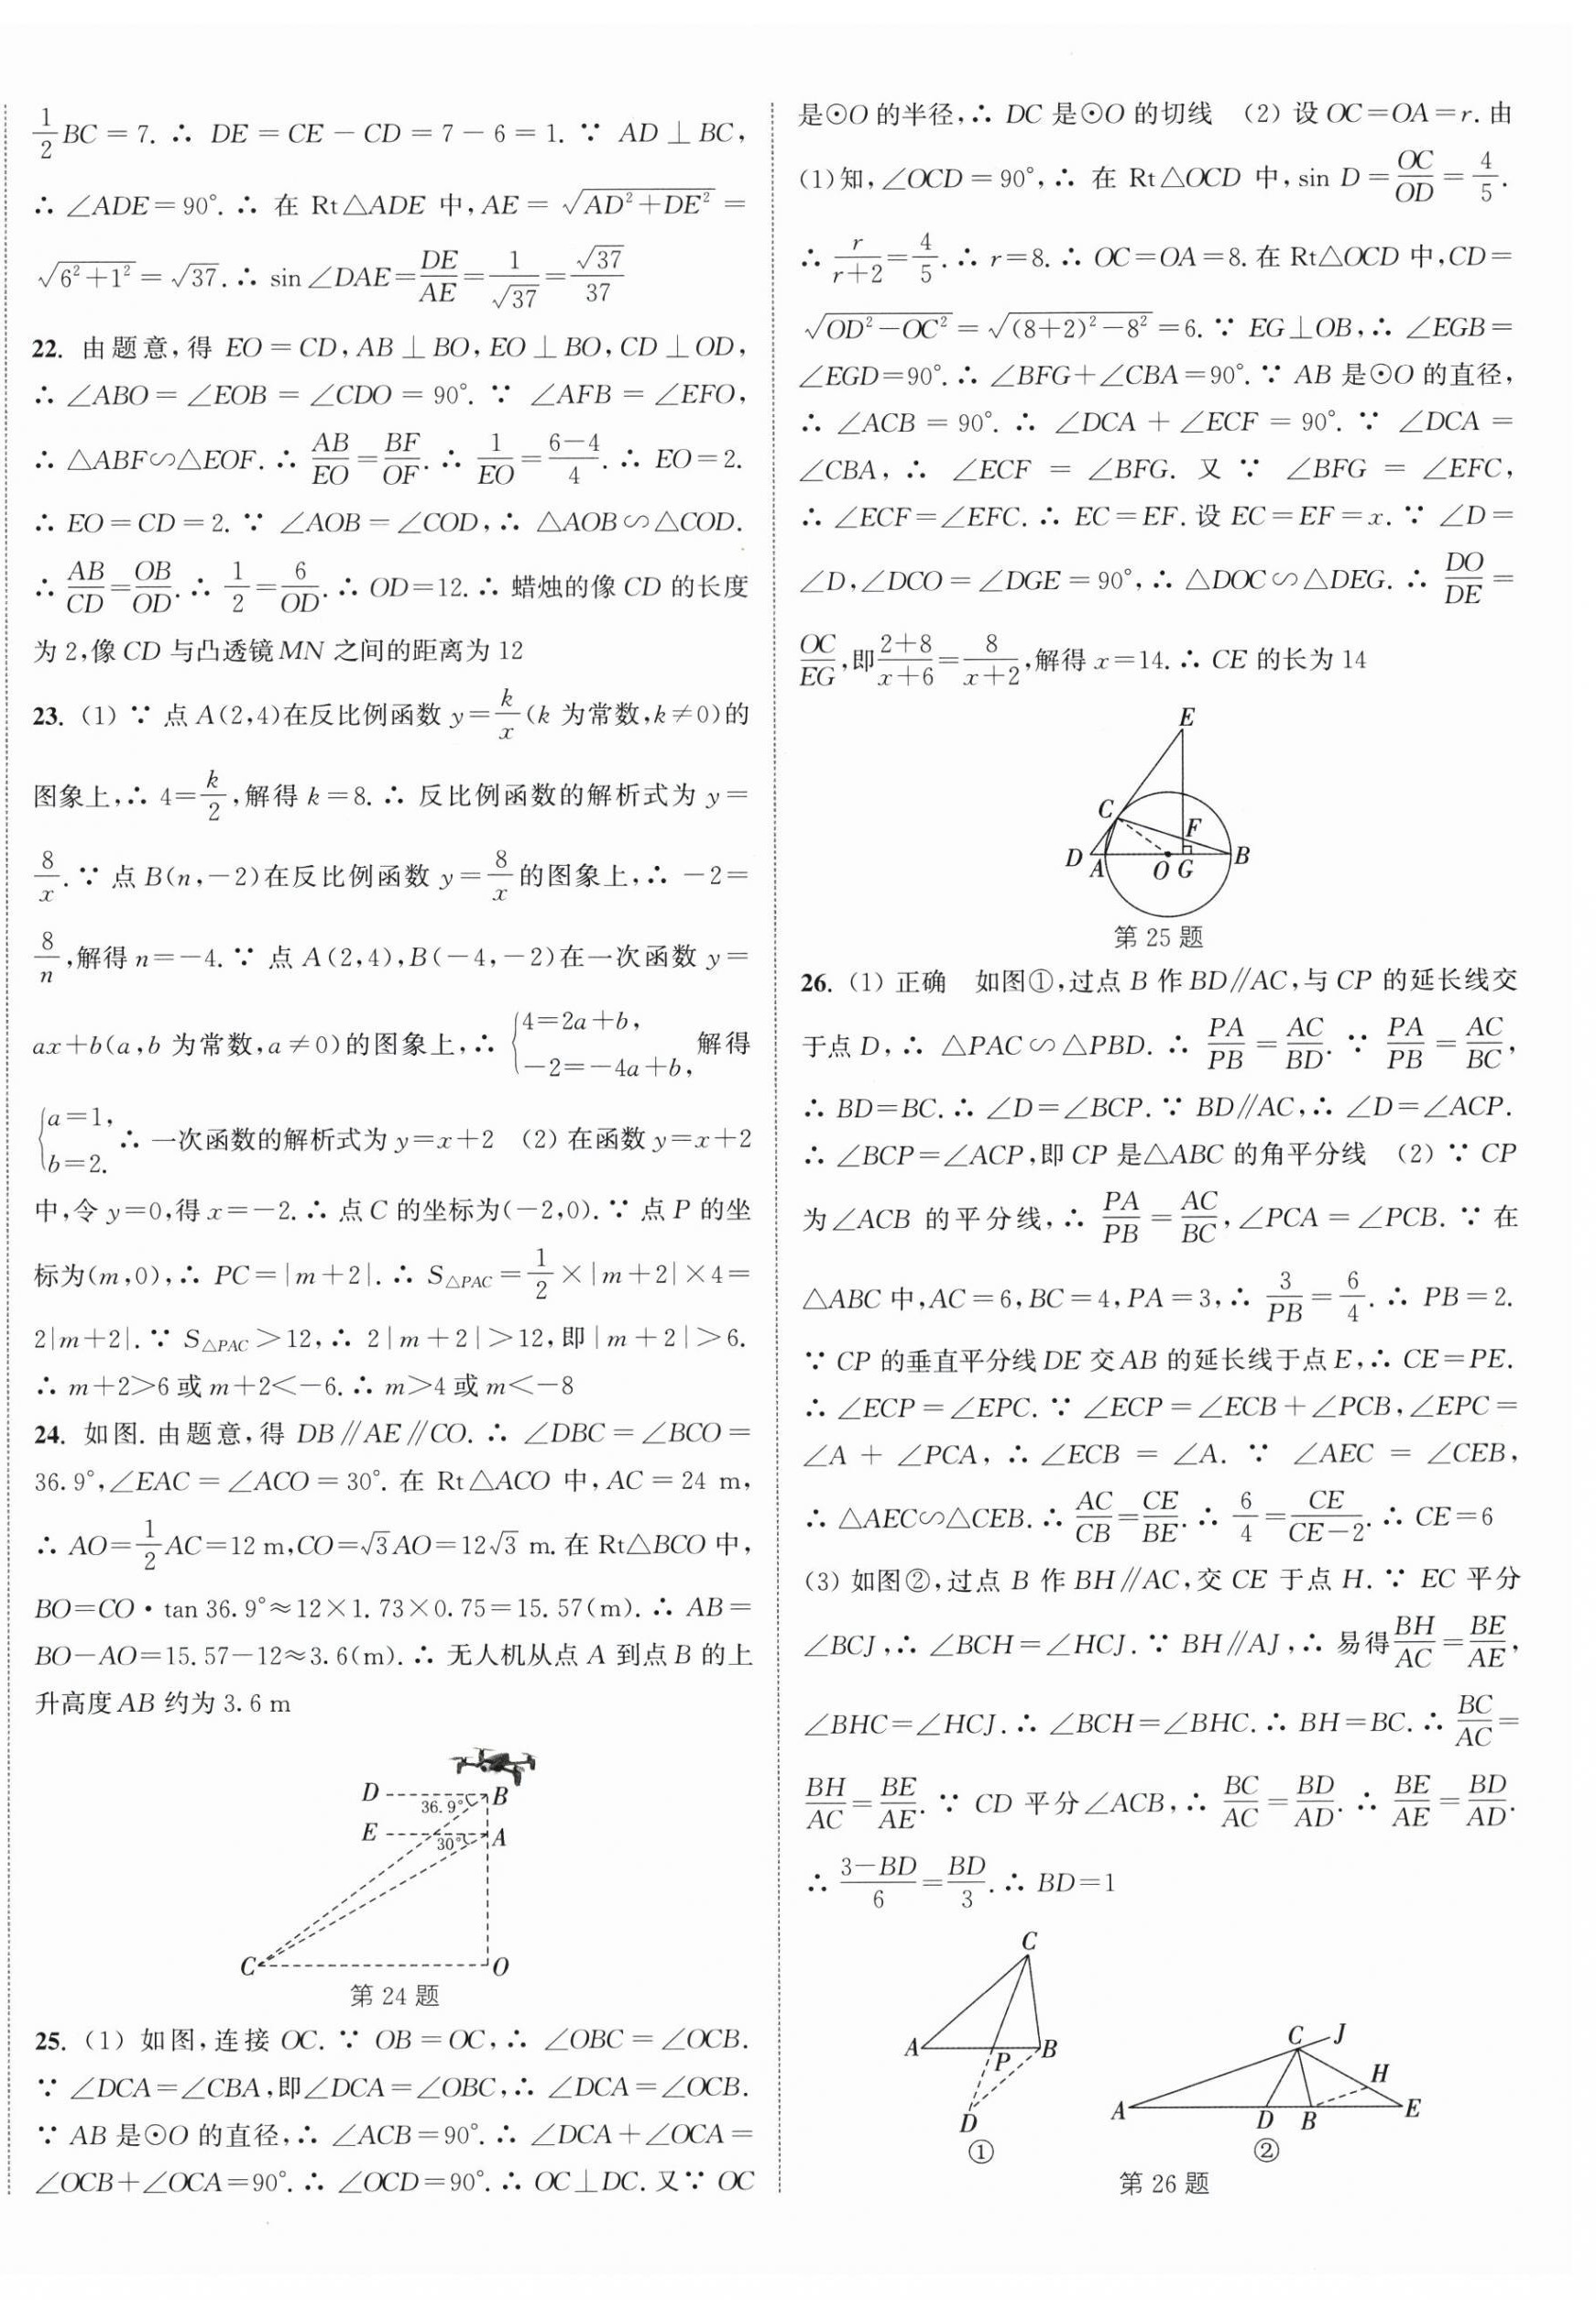 $\frac{1}{2}BC=7$. ∴ $DE=CE-CD=7-6=1$. ∵ $AD\perp BC$,
∴ ∠ADE=90°. ∴ 在 Rt△ADE 中, $AE=\sqrt{AD^2+DE^2}=$
$\sqrt{6^2+1^2}=\sqrt{37}$. ∴ $\sin∠DAE=\frac{DE}{AE}=\frac{1}{\sqrt{37}}=\frac{\sqrt{37}}{37}$
22. 由题意,得 EO=CD,AB⊥BO,EO⊥BO,CD⊥OD,
∴ ∠ABO=∠EOB=∠CDO=90°. ∵ ∠AFB=∠EFO,
∴ △ABF∽△EOF. ∴ $\frac{AB}{EO}=\frac{BF}{OF}$. ∴ $\frac{1}{EO}=\frac{6-4}{4}$. ∴ EO=2.
∴ EO=CD=2. ∵ ∠AOB=∠COD,∴ △AOB∽△COD.
∴ $\frac{AB}{CD}=\frac{OB}{OD}$. ∴ $\frac{1}{2}=\frac{6}{OD}$. ∴ OD=12. ∴ 蜡烛的像 CD 的长度
为 2,像 CD 与凸透镜 MN 之间的距离为 12
23. (1) ∵ 点 A(2,4)在反比例函数 $y=\frac{k}{x}$(k 为常数,k≠0)的
图象上,∴ $4=\frac{k}{2}$,解得 k=8. ∴ 反比例函数的解析式为 y=
$\frac{8}{x}$. ∵ 点 B(n,-2)在反比例函数 $y=\frac{8}{x}$ 的图象上,∴ -2=
$\frac{8}{n}$,解得 n=-4. ∵ 点 A(2,4),B(-4,-2)在一次函数 y=
ax+b(a,b 为常数,a≠0)的图象上,∴ $\begin{cases}4=2a+b,\\-2=-4a+b,\end{cases}$ 解得
$\begin{cases}a=1,\\b=2.\end{cases}$ ∴ 一次函数的解析式为 y=x+2 (2) 在函数 y=x+2
中,令 y=0,得 x=-2. ∴ 点 C 的坐标为(-2,0). ∵ 点 P 的坐
标为(m,0),∴ PC=|m+2|. ∴ $S_{△PAC}=\frac{1}{2}×|m+2|×4=$
2|m+2|. ∵ $S_{△PAC}$>12,∴ 2|m+2|>12,即|m+2|>6.
∴ m+2>6 或 m+2<-6. ∴ m>4 或 m<-8
24. 如图. 由题意,得 DB∥AE∥CO. ∴ ∠DBC=∠BCO=
36.9°,∠EAC=∠ACO=30°. 在 Rt△ACO 中,AC=24 m,
∴ $AO=\frac{1}{2}AC=12$ m,$CO=\sqrt{3}AO=12\sqrt{3}$ m. 在 Rt△BCO 中,
BO=CO·tan 36.9°≈12×1.73×0.75=15.57(m). ∴ AB=
BO-AO=15.57-12≈3.6(m). ∴ 无人机从点 A 到点 B 的上
升高度 AB 约为 3.6 m
D
B
36.9°
E
A
30°
C
O
第 24 题
25. (1) 如图,连接 OC. ∵ OB=OC,∴ ∠OBC=∠OCB.
∵ ∠DCA=∠CBA,即∠DCA=∠OBC,∴ ∠DCA=∠OCB.
∵ AB 是⊙O 的直径,∴ ∠ACB=90°. ∴ ∠DCA+∠OCA=
∠OCB+∠OCA=90°. ∴ ∠OCD=90°. ∴ OC⊥DC. 又∵ OC
是⊙O 的半径,∴ DC 是⊙O 的切线 (2) 设 OC=OA=r. 由
(1)知,∠OCD=90°,∴ 在 Rt△OCD 中,$\sin D=\frac{OC}{OD}=\frac{4}{5}$.
∴ $\frac{r}{r+2}=\frac{4}{5}$. ∴ r=8. ∴ OC=OA=8. 在 Rt△OCD 中,CD=
$\sqrt{OD^2-OC^2}=\sqrt{(8+2)^2-8^2}=6$. ∵ EG⊥OB,∴ ∠EGB=
∠EGD=90°. ∴ ∠BFG+∠CBA=90°. ∵ AB 是⊙O 的直径,
∴ ∠ACB=90°. ∴ ∠DCA+∠ECF=90°. ∵ ∠DCA=
∠CBA,∴ ∠ECF=∠BFG. 又∵ ∠BFG=∠EFC,
∴ ∠ECF=∠EFC. ∴ EC=EF. 设 EC=EF=x. ∵ ∠D=
∠D,∠DCO=∠DGE=90°,∴ △DOC∽△DEG. ∴ $\frac{DO}{DE}=$
$\frac{OC}{EG}$,即$\frac{2+8}{x+6}=\frac{8}{x+2}$,解得 x=14. ∴ CE 的长为 14
E
C
F
D
A
O
G
B
第 25 题
26. (1) 正确 如图①,过点 B 作 BD∥AC,与 CP 的延长线交
于点 D,∴ △PAC∽△PBD. ∴ $\frac{PA}{PB}=\frac{AC}{BD}$. ∵ $\frac{PA}{PB}=\frac{AC}{BC}$,
∴ BD=BC. ∴ ∠D=∠BCP. ∵ BD∥AC,∴ ∠D=∠ACP.
∴ ∠BCP=∠ACP,即 CP 是△ABC 的角平分线 (2) ∵ CP
为∠ACB 的平分线,∴ $\frac{PA}{PB}=\frac{AC}{BC}$,∠PCA=∠PCB. ∵ 在
△ABC 中,AC=6,BC=4,PA=3,∴ $\frac{3}{PB}=\frac{6}{4}$. ∴ PB=2.
∵ CP 的垂直平分线 DE 交 AB 的延长线于点 E,∴ CE=PE.
∴ ∠ECP=∠EPC. ∵ ∠ECP=∠ECB+∠PCB,∠EPC=
∠A+∠PCA,∴ ∠ECB=∠A. ∵ ∠AEC=∠CEB,
∴ △AEC∽△CEB. ∴ $\frac{AC}{CB}=\frac{CE}{BE}$. ∴ $\frac{6}{4}=\frac{CE}{CE-2}$. ∴ CE=6
(3) 如图②,过点 B 作 BH∥AC,交 CE 于点 H. ∵ EC 平分
∠BCJ,∴ ∠BCH=∠HCJ. ∵ BH∥AJ,∴ 易得$\frac{BH}{AC}=\frac{BE}{AE}$,
∠BHC=∠HCJ. ∴ ∠BCH=∠BHC. ∴ BH=BC. ∴ $\frac{BC}{AC}=$
$\frac{BH}{AC}=\frac{BE}{AE}$. ∵ CD 平分∠ACB,∴ $\frac{BC}{AC}=\frac{BD}{AD}$. ∴ $\frac{BE}{AE}=\frac{BD}{AD}$.
∴ $\frac{3-BD}{6}=\frac{BD}{3}$. ∴ BD=1
C
A
P
B
D
①
C
J
H
A
D
B
E
②
第 26 题